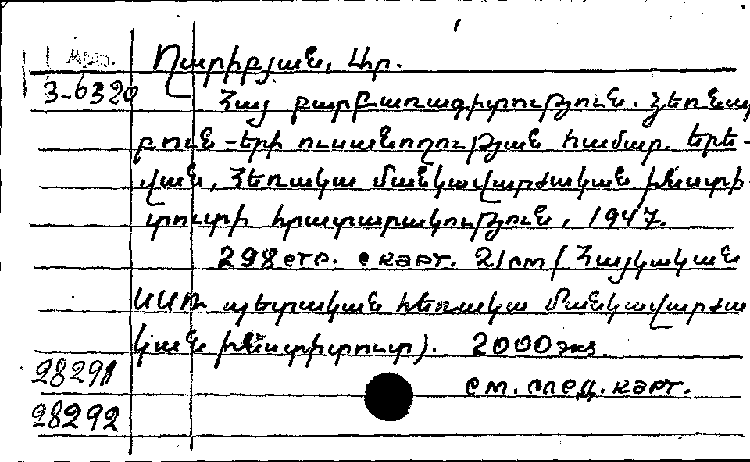 Ղարիբյան, Ար.
3-6320 Հայ բարբառագիտություն. Հեռակա
բուհ-երի ուսանողության համար. Երե-
վան, Հեռակա մանկավարժական ինստի-
տուտի հրատարակություն, 1947.
298 стр. с карт. 21 см (Հայկական
ՍՍՌ պետական հեռակա մանկավարժա
կան ինստիտուտ). 2000 экз.
28291
см. след. карт.
28292